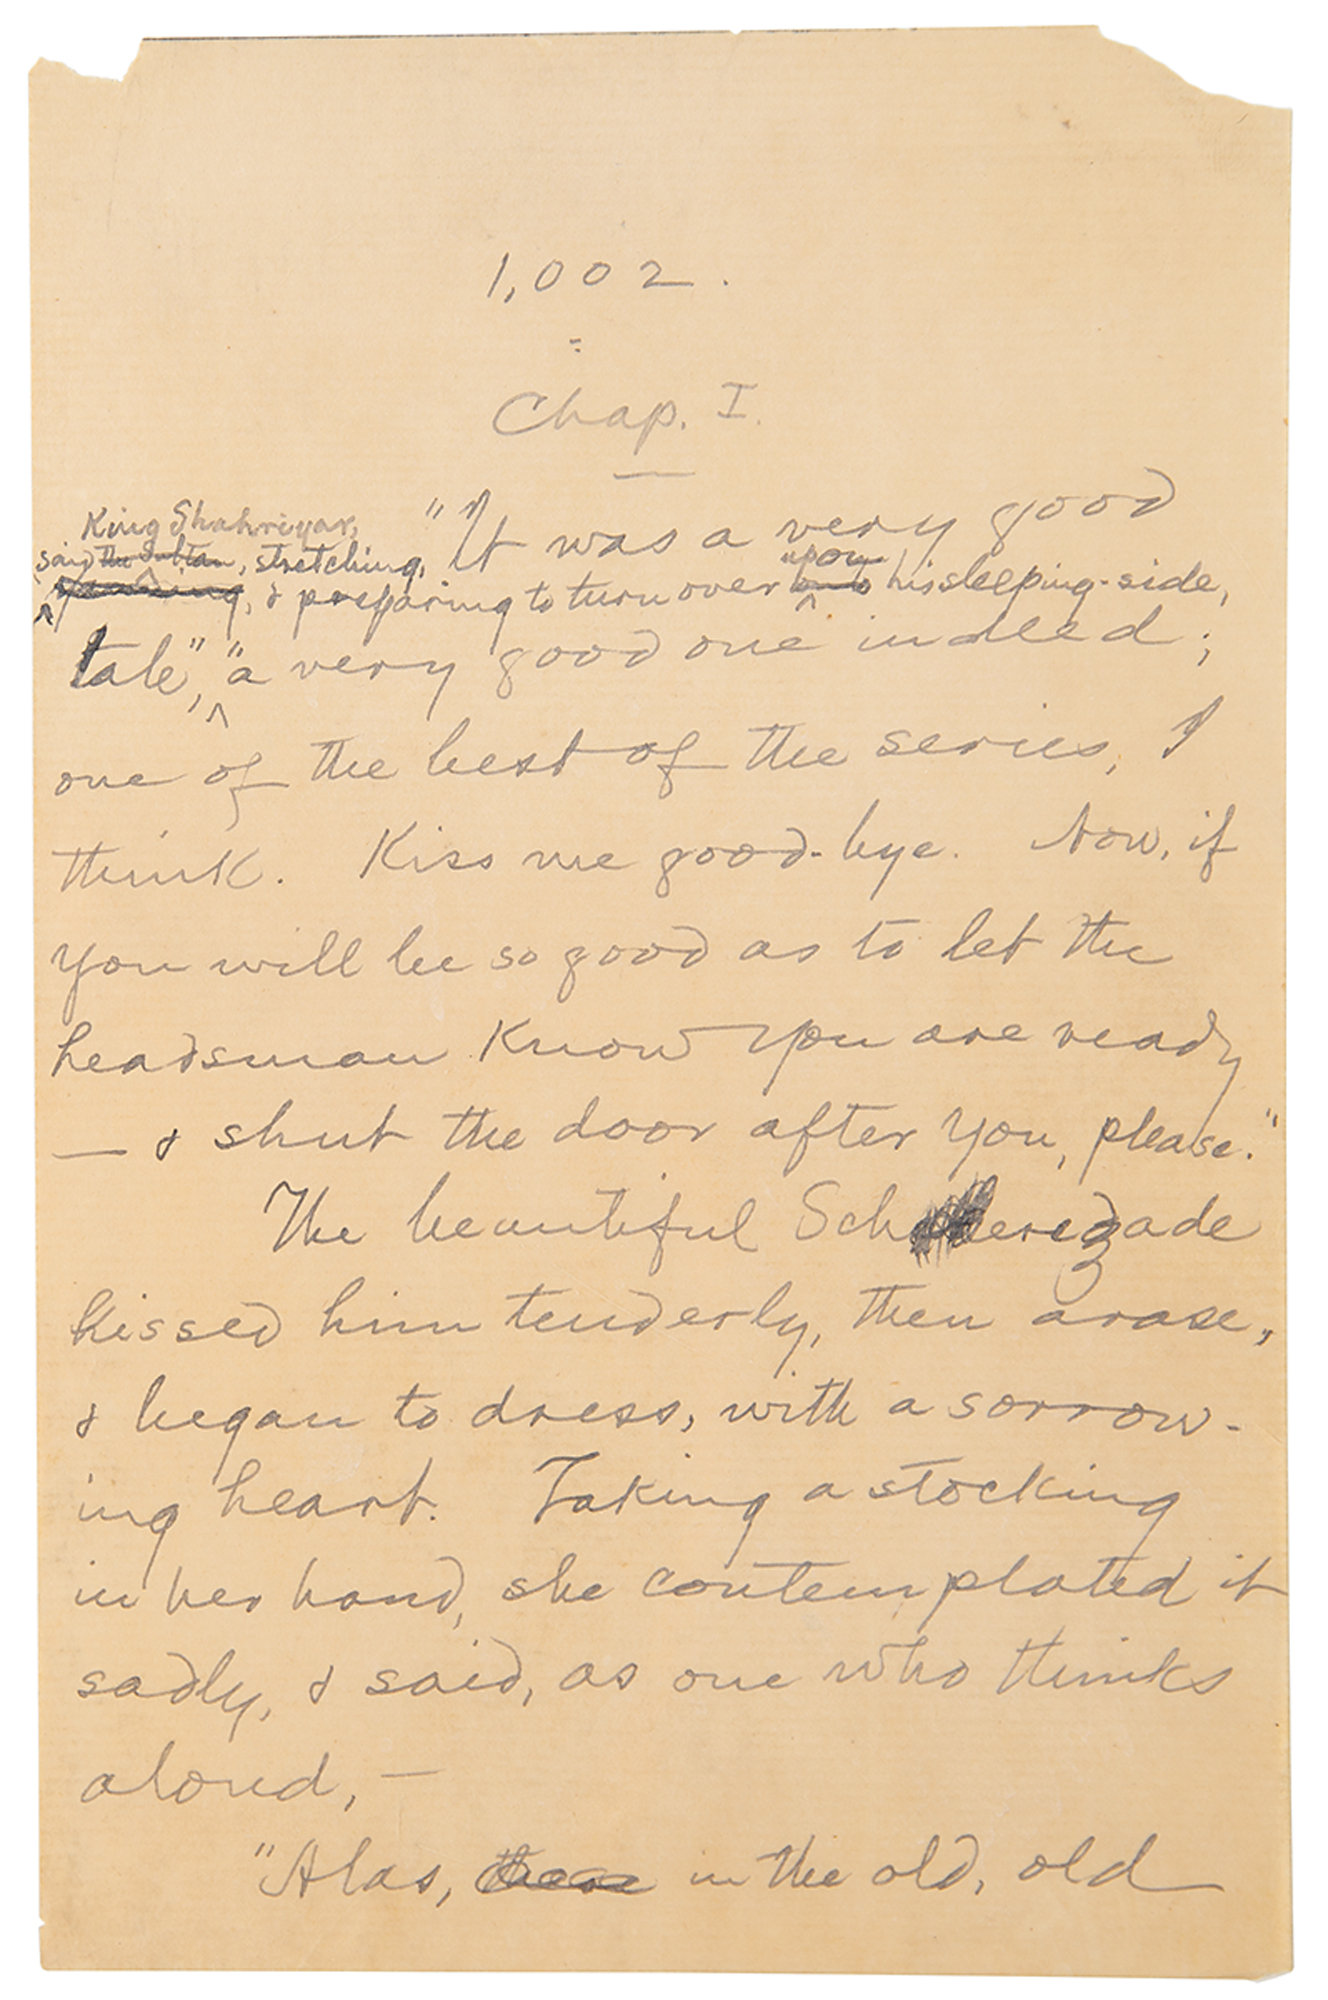 1,002.
Chap. I.
"It was a very good
King Shahriyar,
said the Sultan, stretching,
yawning, & preparing to turn over upon his sleeping-side,
tale," "a very good one indeed;
one of the best of the series, I
think. Kiss me good-bye. Now, if
you will be so good as to let the
headsman know you are ready
— & shut the door after you, please."
The beautiful Scheherezade
kissed him tenderly, then arose,
& began to dress, with a sorrow-
ing heart. Taking a stocking
in her hand, she contemplated it
sadly, & said, as one who thinks
aloud, —
"Alas, in the old, old